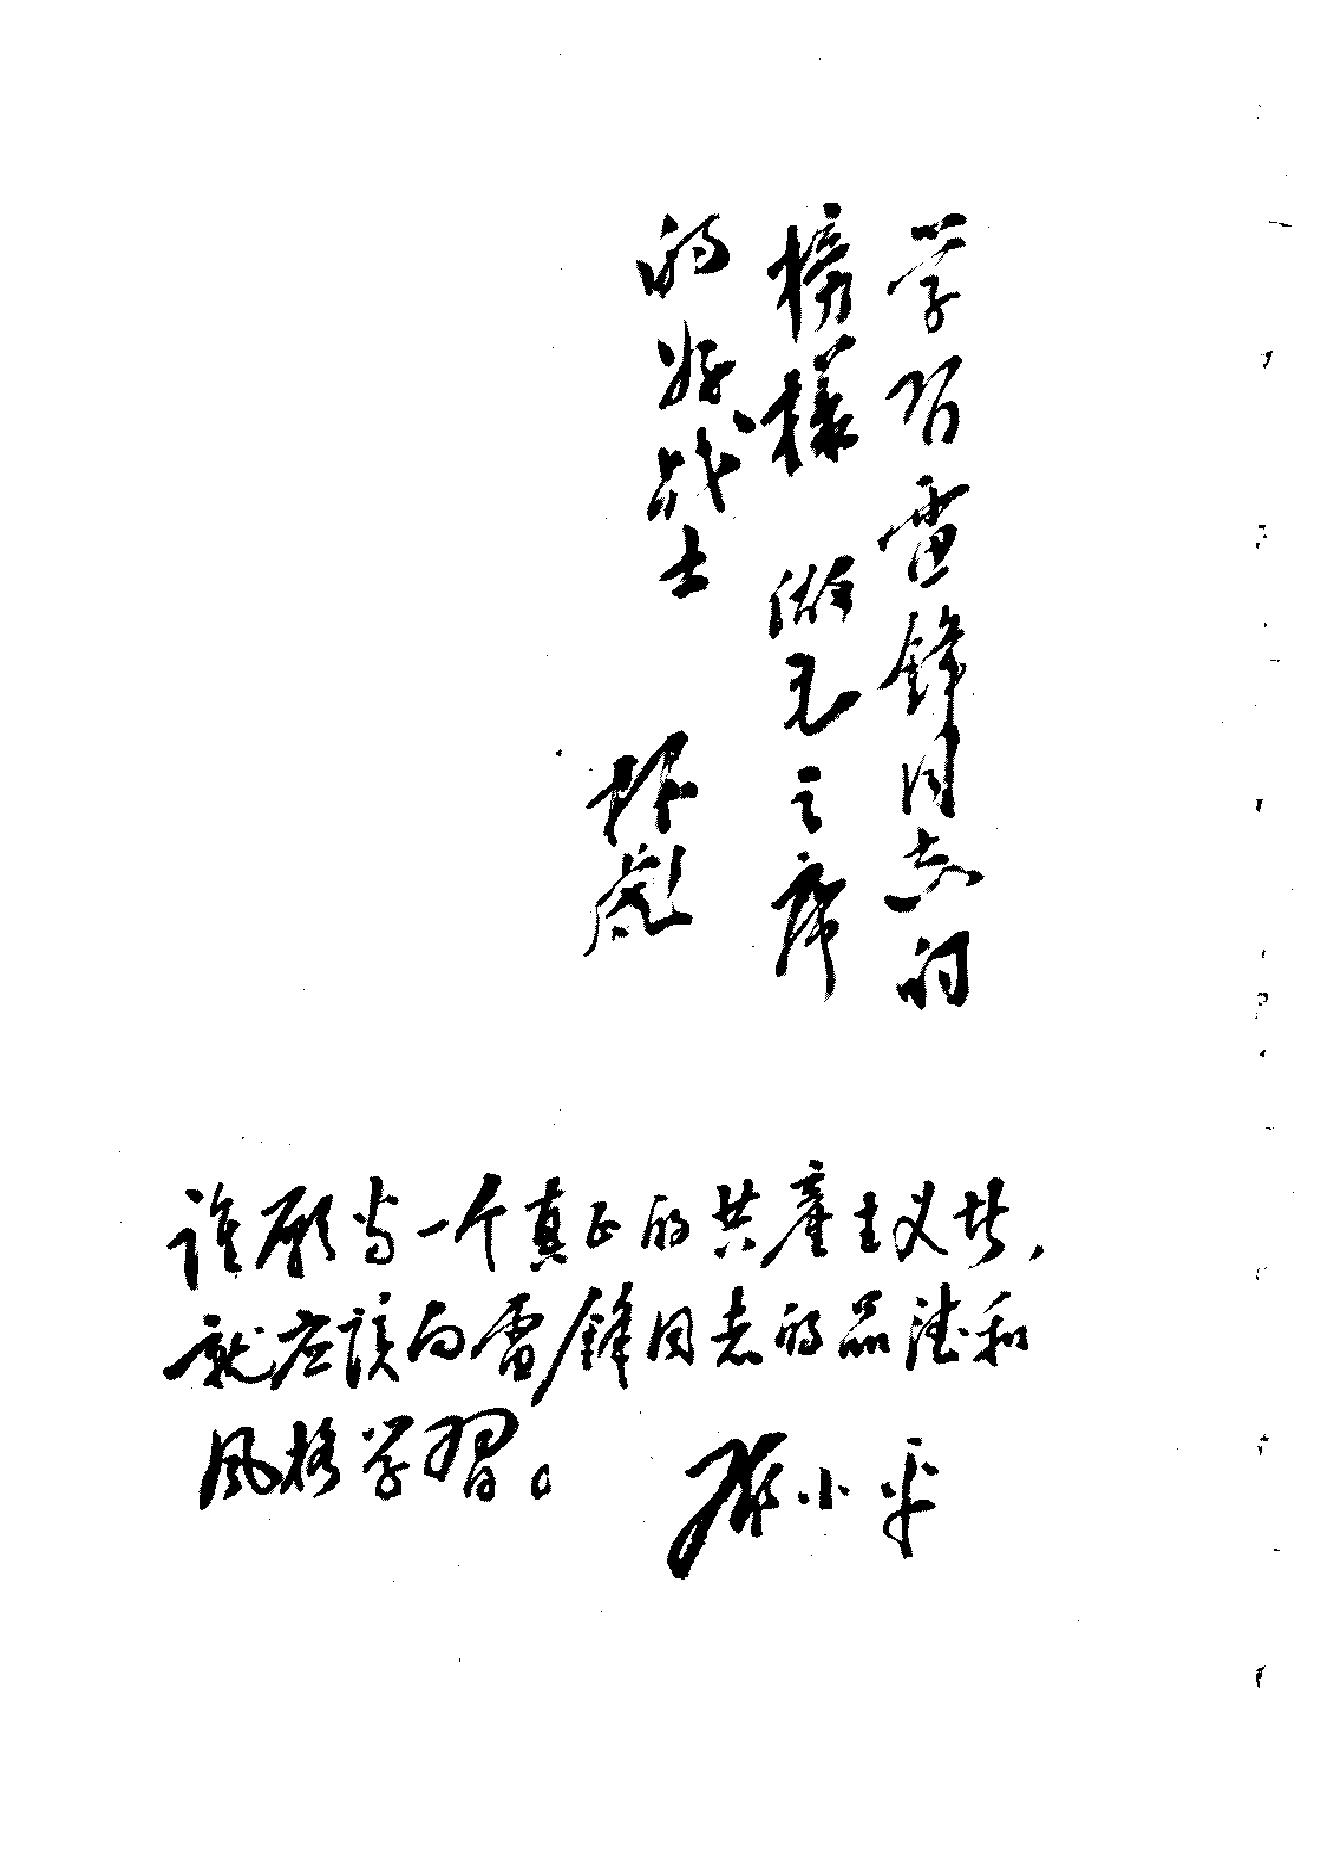 学习雷锋同志的
榜樣 做毛主席
的好战士
林彪
谁愿当一个真正的共產主义者，
就应该向雷锋同志的品德和
风格学習。 邓小平